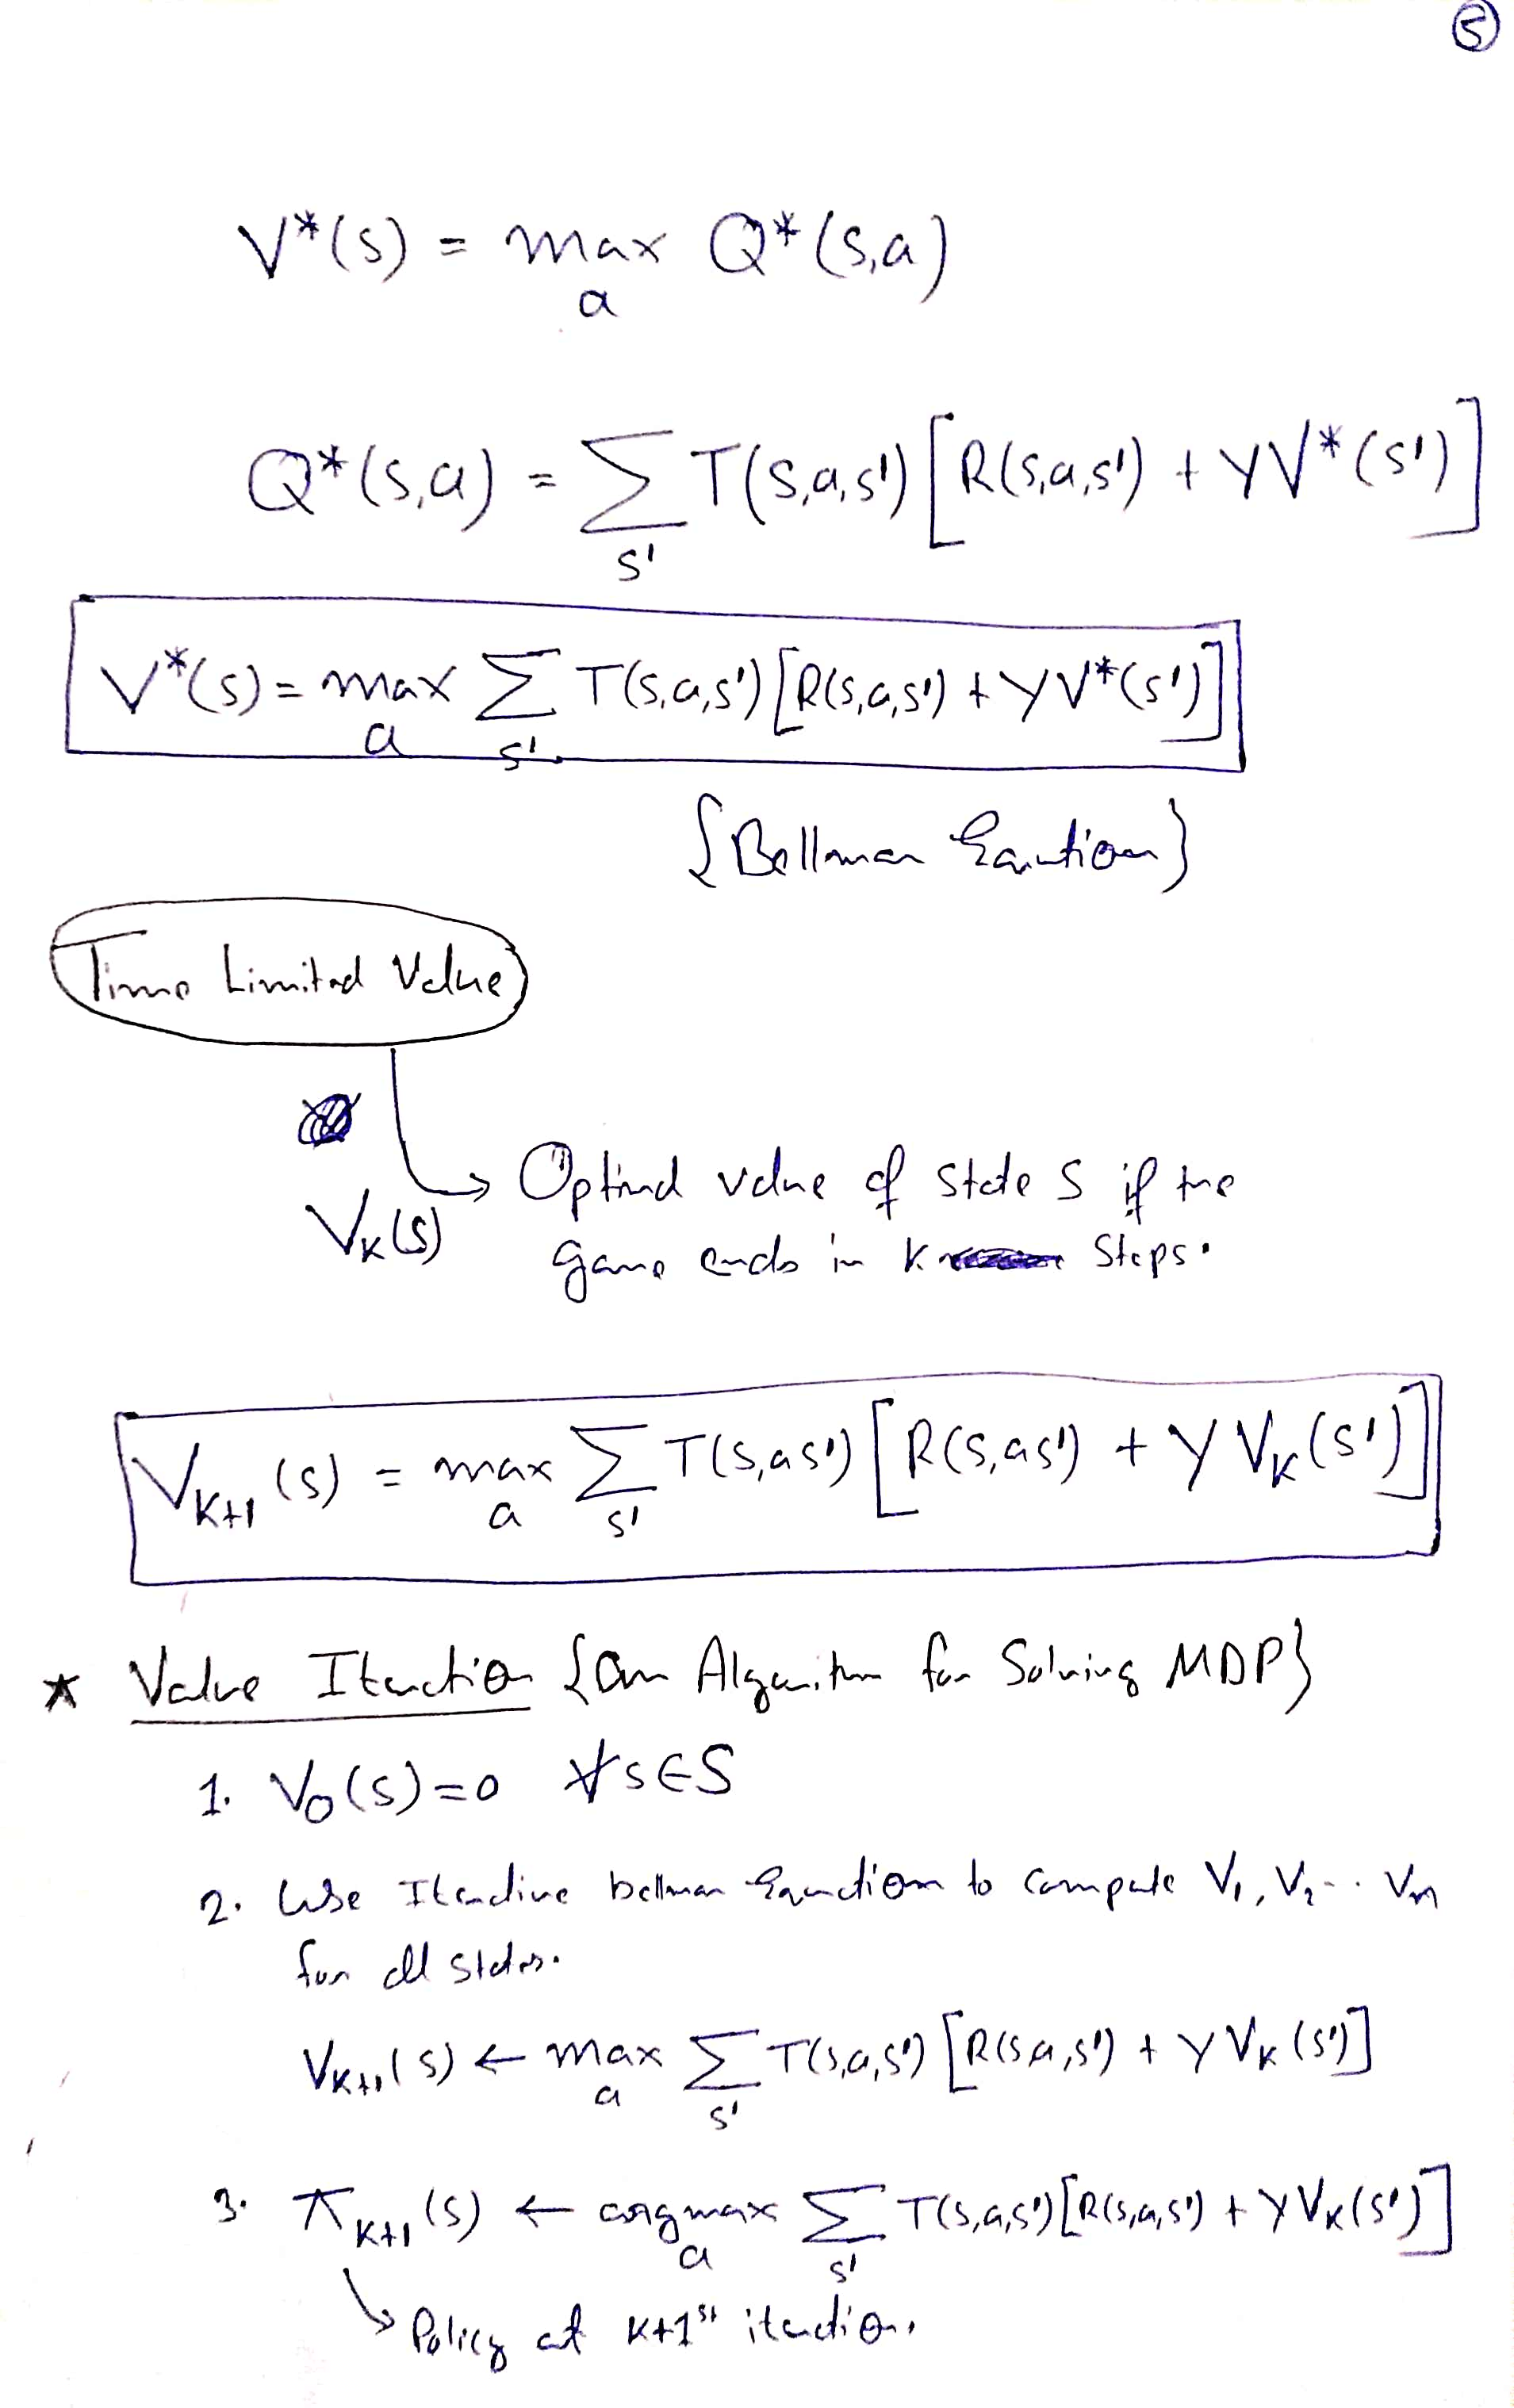 5
V*(s) = max Q*(s,a)
a
Q*(s,a) = Σ T(s,a,s') [R(s,a,s') + γV*(s')]
s'
V*(s) = max Σ T(s,a,s') [R(s,a,s') + γV*(s')]
a s'
{Bellman Equation}
Time Limited Value
Vk(s) → Optimal value of state s if the
game ends in k steps.
Vk+1(s) = max Σ T(s,as') [R(s,as') + γ Vk(s')]
a s'
* Value Iteration {An Algorithm for Solving MDP}
1. V0(s)=0 ∀s∈S
2. Use Iterative bellman Equation to compute V1, V2... Vm
for all states.
Vk+1(s) ← max Σ T(s,a,s') [R(s,a,s') + γ Vk(s')]
a s'
3. πk+1(s) ← argmax Σ T(s,a,s') [R(s,a,s') + γVk(s')]
a s'
Policy at k+1st iteration.